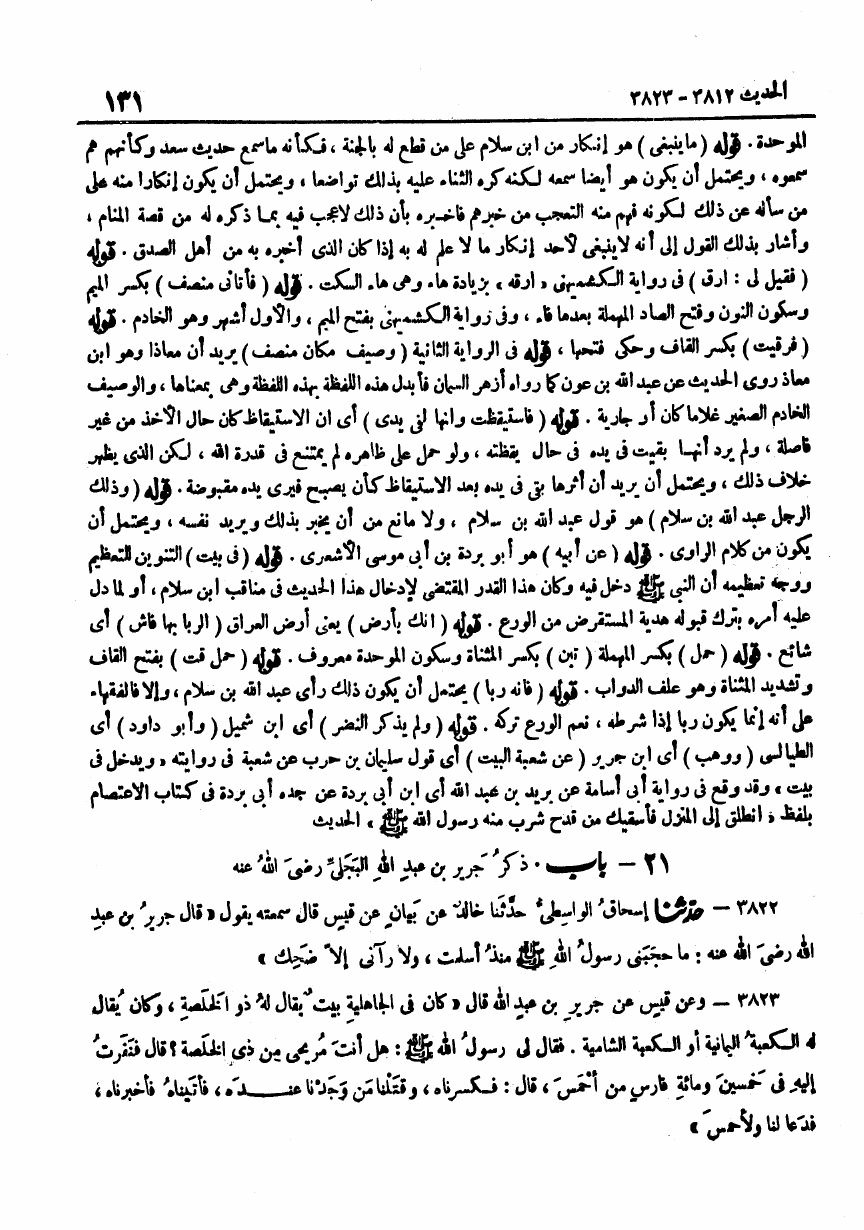 الحديث ٣٨١٢ - ٣٨٢٣
١٣١
الموحدة . قوله ( ما ينبغى ) هو إنكار من ابن سلام على من قطع له بالجنة ، فكأنه ماسمع حديث سعد وكأنهم هم
سمعوه ، ويحتمل أن يكون هو أيضا سمعه لكنه كره الثناء عليه بذلك تواضعا ، ويحتمل أن يكون إنكارا منه على
من سأله عن ذلك لكونه فهم منه التعجب من خبرهم فأخبره بأن ذلك لاعجب فيه بما ذكره له من قصة المنام ،
وأشار بذلك القول إلى أنه لاينبغى لأحد إنكار ما لا علم له به إذا كان الذى أخبره به من أهل الصدق . قوله
( فقيل لى : ارق ) فى رواية الكشميهنى « ارقه » بزيادة هاء وهى هاء السكت . قوله ( فأتانى منصف ) بكسر الميم
وسكون النون وفتح الصاد المهملة بعدها فاء ، وفى رواية الكشميهنى بفتح الميم ، والأول أشهر وهو الخادم . قوله
( فرقيت ) بكسر القاف وحكى فتحها ، قوله فى الرواية الثانية ( وصيف مكان منصف ) يريد أن معاذا وهو ابن
معاذ روى الحديث عن عبد الله بن عون كما رواه أزهر السمان فأبدل هذه اللفظة بهذه اللفظة وهى بمعناها ، والوصيف
الخادم الصغير غلاما كان أو جارية . قوله ( فاستيقظت وانها لفى يدى ) أى ان الاستيقاظ كان حال الأخذ من غير
فاصلة ، ولم يرد أنها بقيت فى يده فى حال يقظته ، ولو حمل على ظاهره لم يمتنع فى قدرة الله ، لكن الذى يظهر
خلاف ذلك ، ويحتمل أن يريد أن أثرها بقى فى يده بعد الاستيقاظ كأن يصبح فيرى يده مقبوضة . قوله ( وذلك
الرجل عبد الله بن سلام ) هو قول عبد الله بن سلام ، ولا مانع من أن يخبر بذلك ويريد نفسه ، ويحتمل أن
يكون من كلام الراوى . قوله ( عن أبيه ) هو أبو بردة بن أبى موسى الأشعرى . قوله ( فى بيت ) التنوين للتعظيم
ووجه تعظيمه أن النبي ﷺ دخل فيه وكان هذا القدر المقتضى لإدخال هذا الحديث فى مناقب ابن سلام ، أو لما دل
عليه أمره بترك قبوله هدية المستقرض من الورع . قوله ( انك بأرض ) يعنى أرض العراق ( الربا بها فاش ) أى
شائع . قوله ( حمل ) بكسر المهملة ( تبن ) بكسر المثناة وسكون الموحدة معروف . قوله ( حمل قت ) بفتح القاف
وتشديد المثناة وهو علف الدواب . قوله ( فانه ربا ) يحتمل أن يكون ذلك رأى عبد الله بن سلام ، وإلا فالفقهاء
على أنه إنما يكون ربا إذا شرطه ، نعم الورع تركه . قوله ( ولم يذكر النضر ) أى ابن شميل ( وأبو داود ) أى
الطيالسى ( ووهب ) أى ابن جرير ( عن شعبة البيت ) أى قول سليمان بن حرب عن شعبة فى روايته « ويدخل فى
بيت » وقد وقع فى رواية أبى أسامة عن بريد بن عبد الله أى ابن أبى بردة عن جده أبى بردة فى كتاب الاعتصام
بلفظ « انطلق إلى المنزل فأسقيك من قدح شرب منه رسول الله ﷺ » الحديث
٢١ - باب . ذكرُ جَرير بن عبدِ اللهِ البَجَليِّ رضىَ اللهُ عنه
٣٨٢٢ - حدثنا إسحاقُ الواسِطىُّ حدَّثَنا خالدٌ عن بَيانٍ عن قَيسٍ قال سمعته يقول « قال جريرُ بن عبدِ
الله رضىَ الله عنه : ما حجَبَنى رسولُ اللهِ ﷺ منذُ أسلمت ، ولا رآنى إلاَّ ضَحِك »
٣٨٢٣ - وعن قيسٍ عن جريرِ بن عبدِ الله قال « كان فى الجاهليةِ بيتٌ يُقال لهُ ذو الخلَصةِ ، وكان يُقال
له الكعبةُ اليمانية أو الكعبة الشامية . فقال لى رسولُ الله ﷺ : هل أنتَ مُريحى مِن ذي الخلَصة ؟ قال فنَفَرتُ
إليهِ فى خمسينَ ومائةِ فارسٍ من أحْمَسَ ، قال : فكسرناه ، وقتَلْنا مَن وَجَدْنا عنده ، فأتَيناهُ فأخبرناه ،
فدَعا لنا ولأحمسَ »